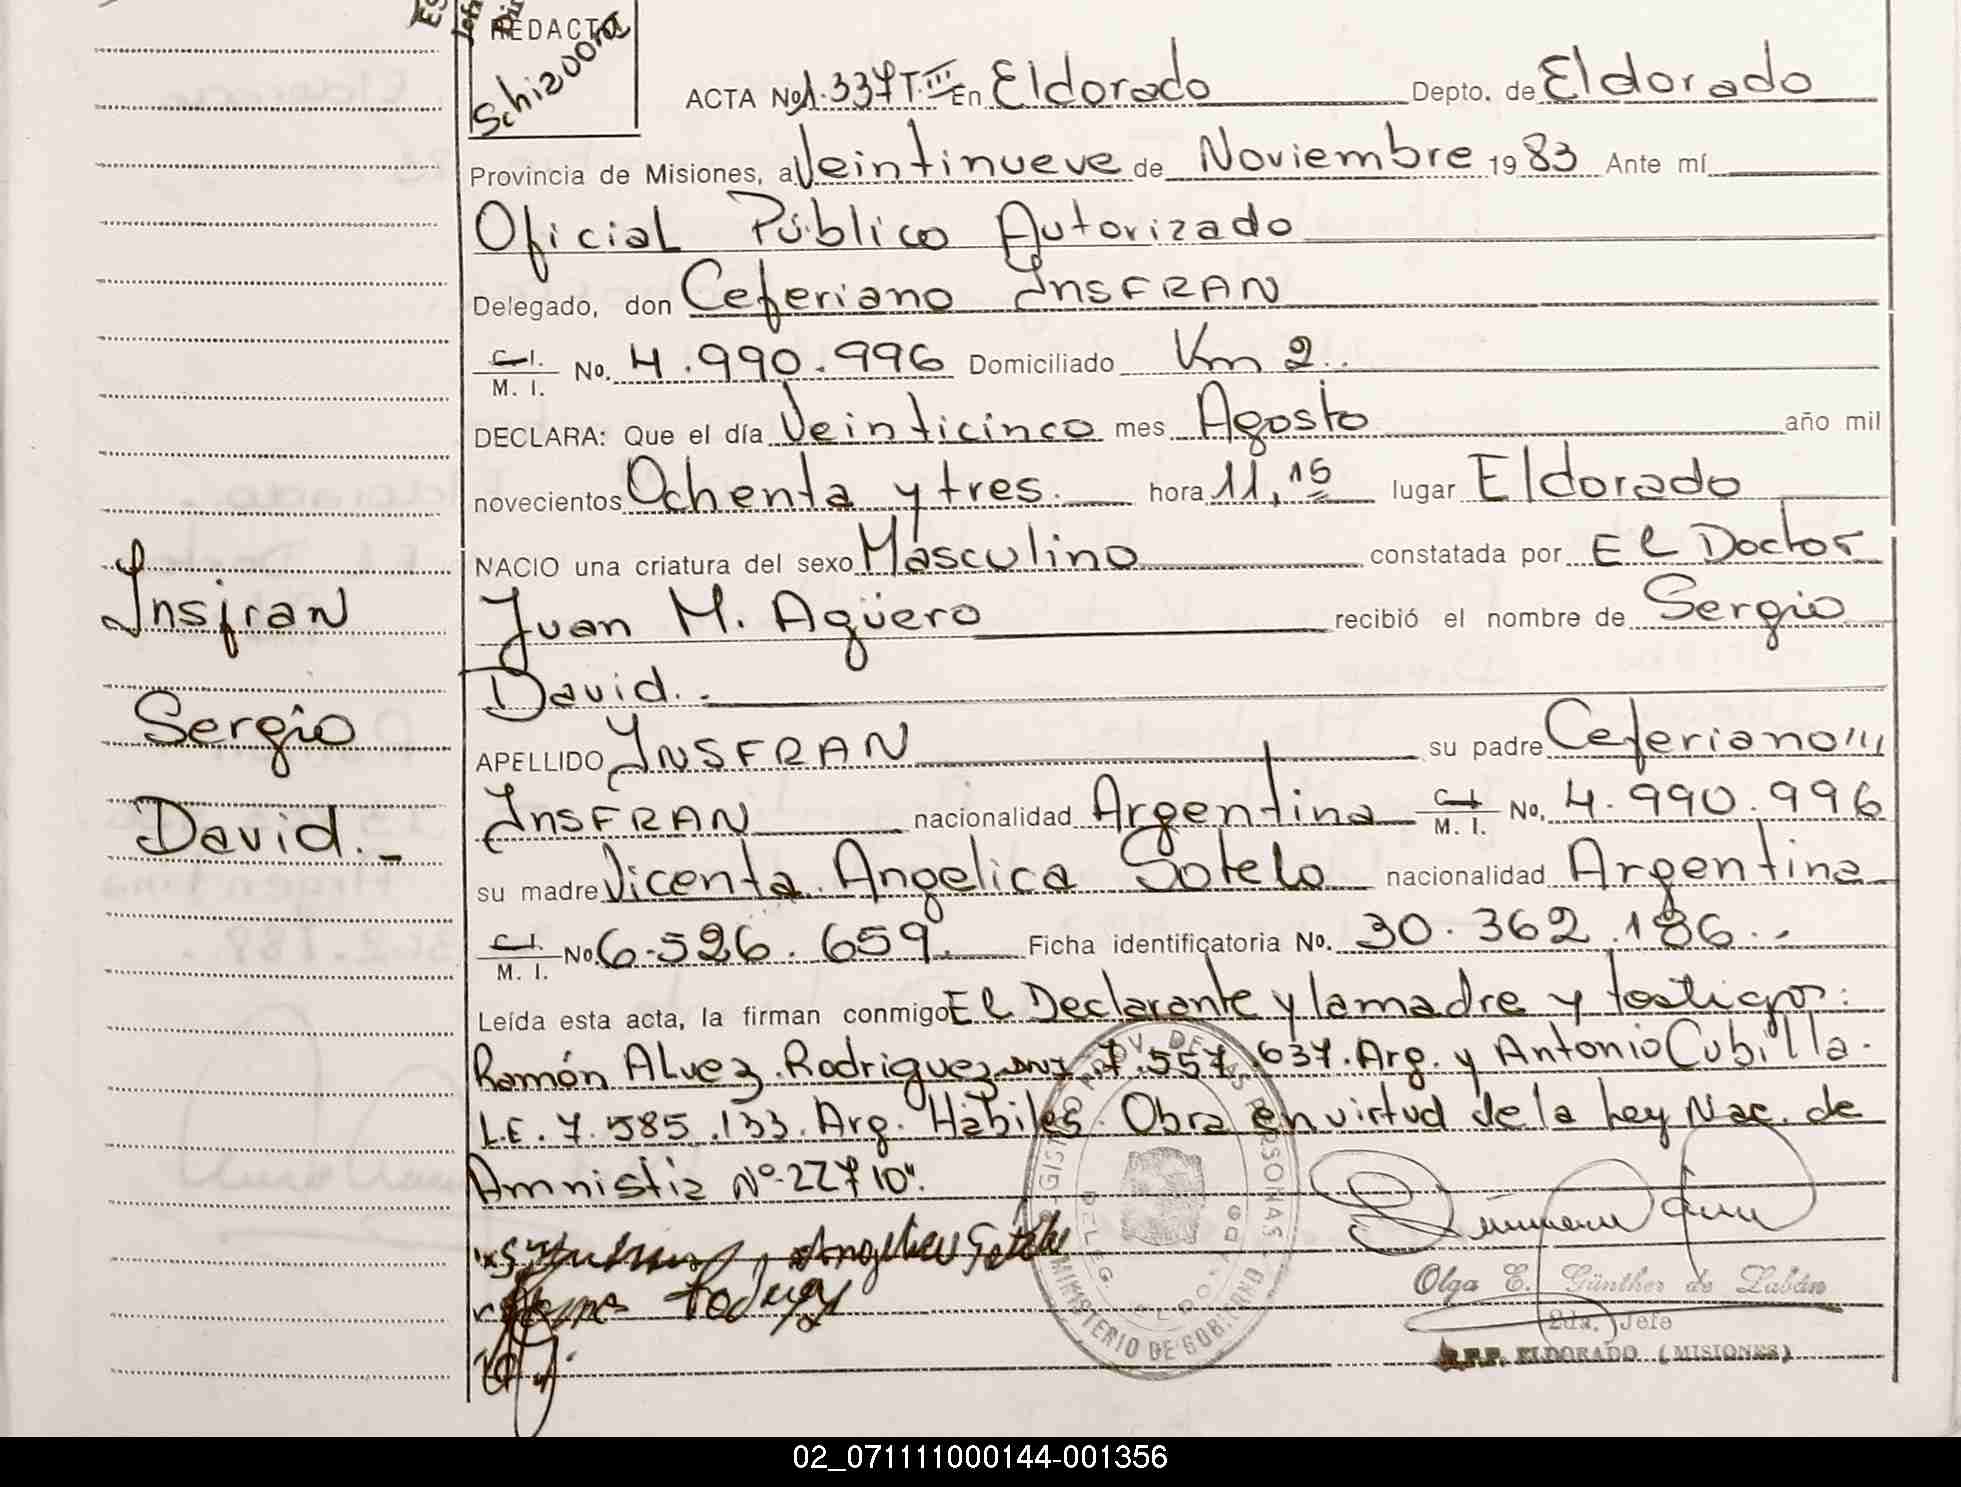 REDACTO
Schizoona
ACTA No 1.337 T. III En Eldorado Depto. de Eldorado
Provincia de Misiones, a Veintinueve de Noviembre 1983 Ante mí
Oficial Público Autorizado
Delegado, don Ceferiano INSFRAN
C.I. / M. I. No. 4.990.996 Domiciliado Km 2..
DECLARA: Que el día Veinticinco mes Agosto año mil
novecientos Ochenta y tres. hora 11,15 lugar Eldorado
NACIO una criatura del sexo Masculino constatada por El Doctor
Juan M. Agüero recibió el nombre de Sergio
David.-
APELLIDO INSFRAN su padre Ceferiano
INSFRAN nacionalidad Argentina C.I. / M. I. No. 4.990.996
su madre Vicenta Angelica Sotelo nacionalidad Argentina
C.I. / M. I. No. 6.526.659. Ficha identificatoria No. 30.362.186.-
Leída esta acta, la firman conmigo El Declarante y la madre y testigos:
Ramón Alvez Rodriguez DNI 7.557.637. Arg. y Antonio Cubilla.
L.E. 7.585.133. Arg. Hábiles. Obra en virtud de la Ley Nac. de
Amnistia Nº 22710".
Insfran
Sergio
David.-
Angelica Sotelo
REGISTRO PROV. DE LAS PERSONAS
MINISTERIO DE GOBIERNO
DELEG. ELDORADO
Olga E. Günther de Zabán
2da. Jefe
R.P.P. ELDORADO (MISIONES)
02_071111000144-001356